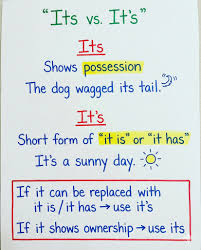 "Its vs. It's"
Its
Shows possession
The dog wagged its tail.
It's
Short form of "it is" or "it has"
It's a sunny day.
If it can be replaced with
it is / it has → use it's
If it shows ownership → use its